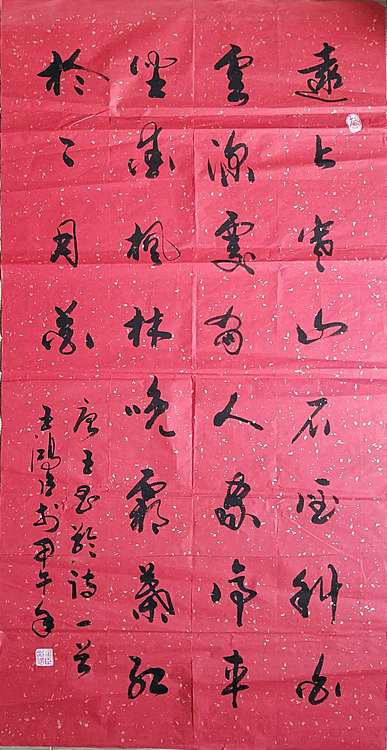 遠上寒山石径斜白
雲深處有人家停車
坐愛楓林晚霜葉紅
於二月花
唐王昌齡詩一首
鴻於甲午年